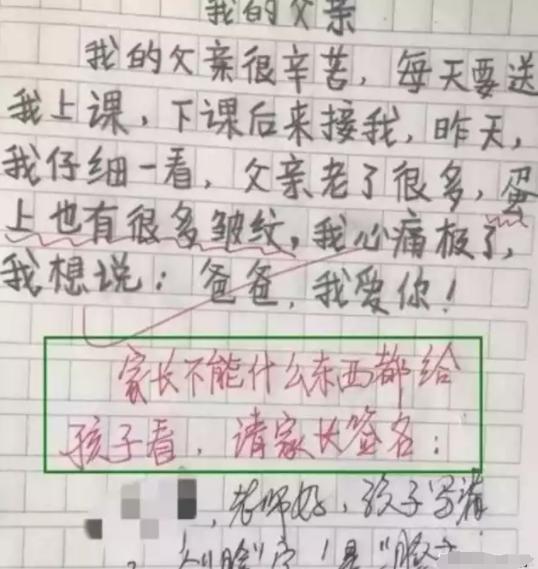 我的父亲
我的父亲很辛苦，每天要送
我上课，下课后来接我，昨天，
我仔细一看，父亲老了很多，蛋
上也有很多皱纹，我心痛极了，
我想说：爸爸，我爱你！
家长不能什么东西都给
孩子看，请家长签名：
，老师好，孩子写错
"脸"字！是"脸